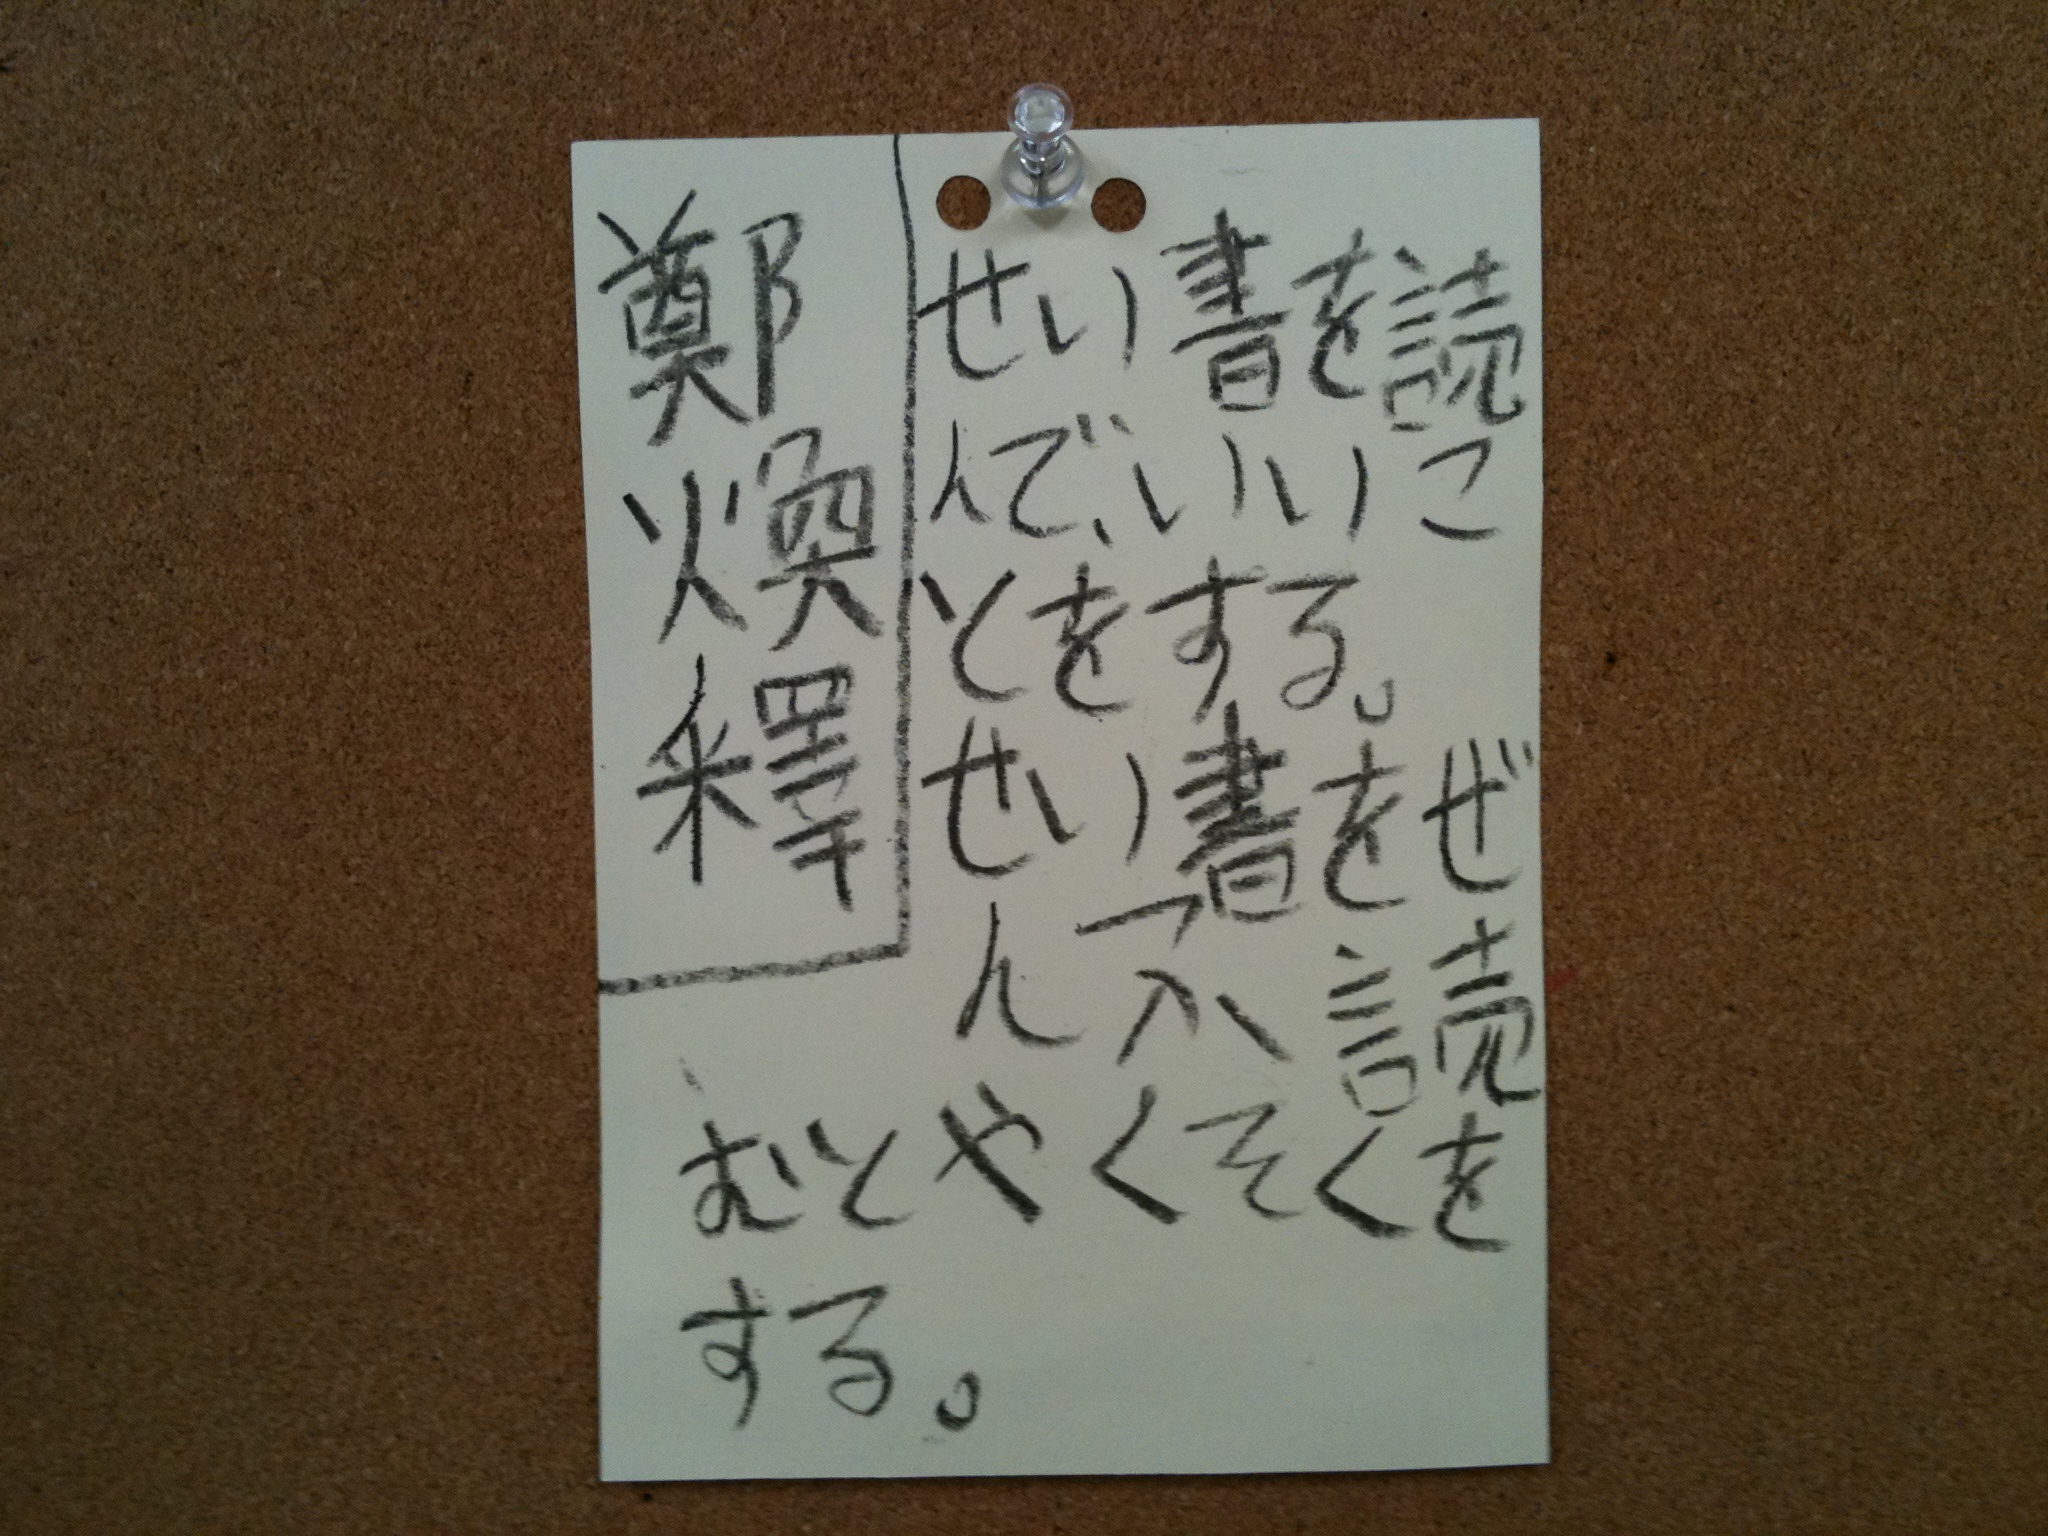 鄭煥釋
せい書を読
んで、いいこ
とをする。
せい書をぜ
んふ読
むとやくそくを
する。